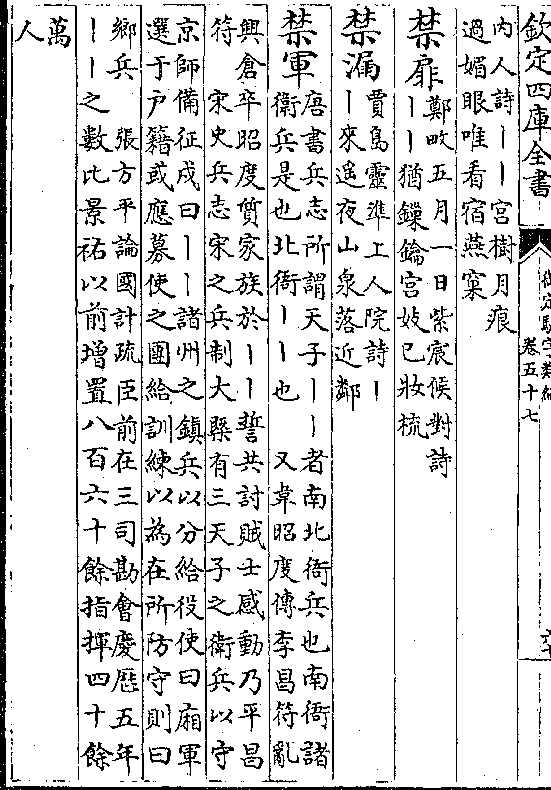 欽定四庫全書
卷五十七
內人詩丨丨宮樹月痕
過媚眼唯看宿燕窠
禁扉
鄭畋五月一日紫宸候對詩
丨丨猶鏁鑰宮妓已妝梳
禁漏
賈島靈準上人院詩丨
丨來遥夜山泉落近鄰
禁軍
唐書兵志所謂天子丨丨者南北衙兵也南衙諸
衛兵是也北衙丨丨也 又韋昭度傳李昌符亂
興倉卒昭度質家族於丨丨誓共討賊士感動乃平昌
符 宋史兵志宋之兵制大槩有三天子之衛兵以守
京師備征戍曰丨丨諸州之鎮兵以分給役使曰廂軍
選于戶籍或應募使之團給訓練以為在所防守則曰
鄉兵 張方平論國計疏臣前在三司勘會慶厯五年
丨丨之數比景祐以前增置八百六十餘指揮四十餘
萬
人